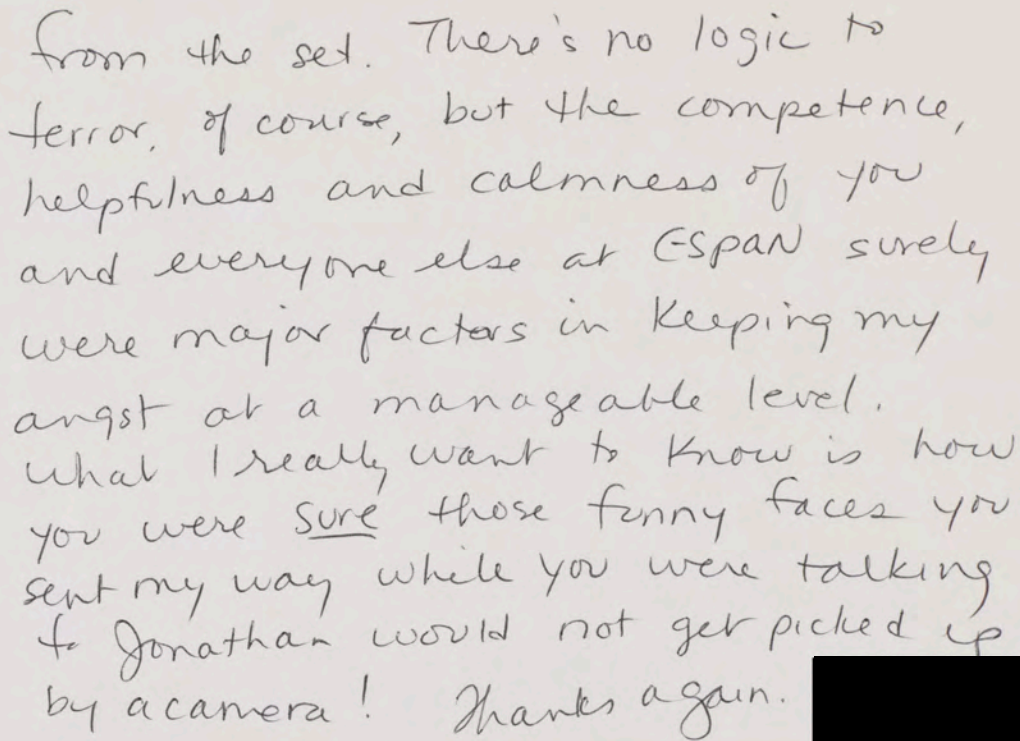 from the set. There's no logic to
terror, of course, but the competence,
helpfulness and calmness of you
and everyone else at CSPAN surely
were major factors in keeping my
angst at a manageable level.
What I really want to know is how
you were sure those funny faces you
sent my way while you were talking
to Jonathan would not get picked up
by a camera! Thanks again.